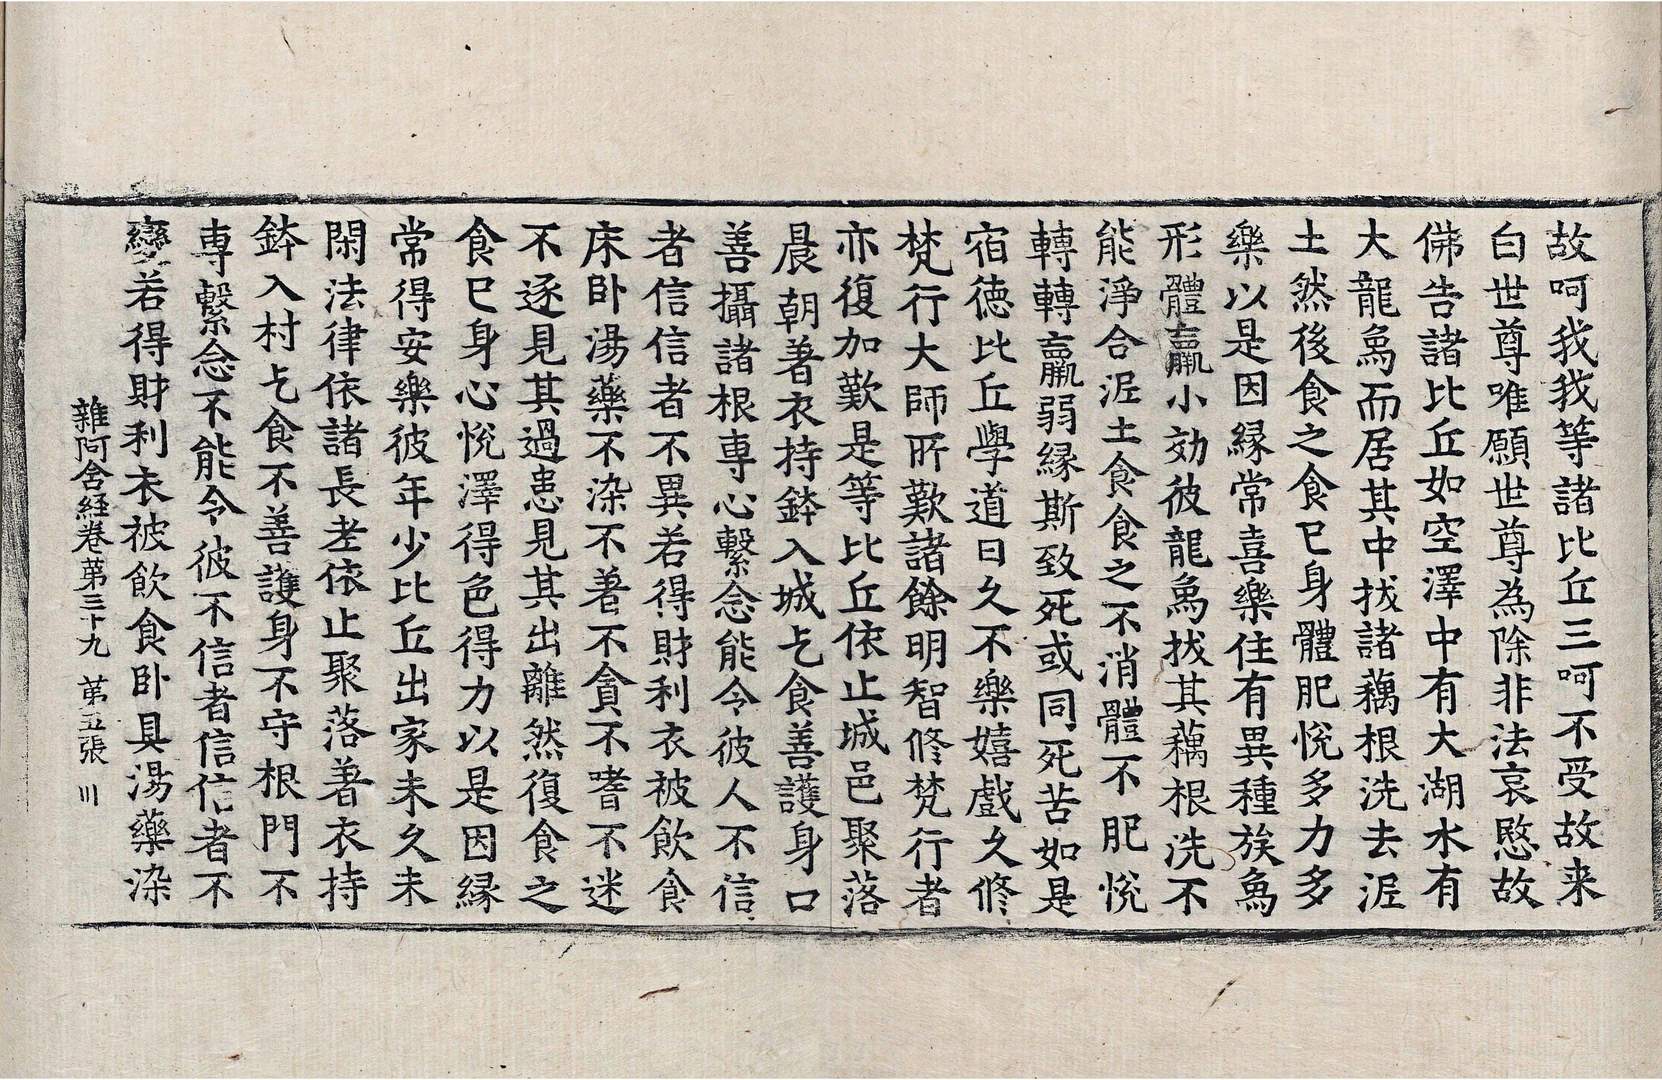 故呵我我等諸比丘三呵不受故来
白世尊唯願世尊為除非法哀愍故
佛告諸比丘如空澤中有大湖水有
大龍象而居其中拔諸藕根洗去泥
土然後食之食已身體肥悅多力多
樂以是因縁常喜樂住有異種族象
形體羸小効彼龍象拔其藕根洗不
能淨合泥土食食之不消體不肥悅
轉轉羸弱縁斯致死或同死苦如是
宿徳比丘學道日久不樂嬉戲久修
梵行大師所歎諸餘明智修梵行者
亦復加歎是等比丘依止城邑聚落
晨朝著衣持鉢入城乞食善護身口
善攝諸根專心繫念能令彼人不信
者信信者不異若得財利衣被飲食
床卧湯藥不染不著不貪不嗜不迷
不逐見其過患見其出離然復食之
食已身心悅澤得色得力以是因縁
常得安樂彼年少比丘出家未久未
閑法律依諸長老依止聚落著衣持
鉢入村乞食不善護身不守根門不
專繫念不能令彼不信者信信者不
變若得財利衣被飲食卧具湯藥染
雜阿含経卷第三十九 第五張 川